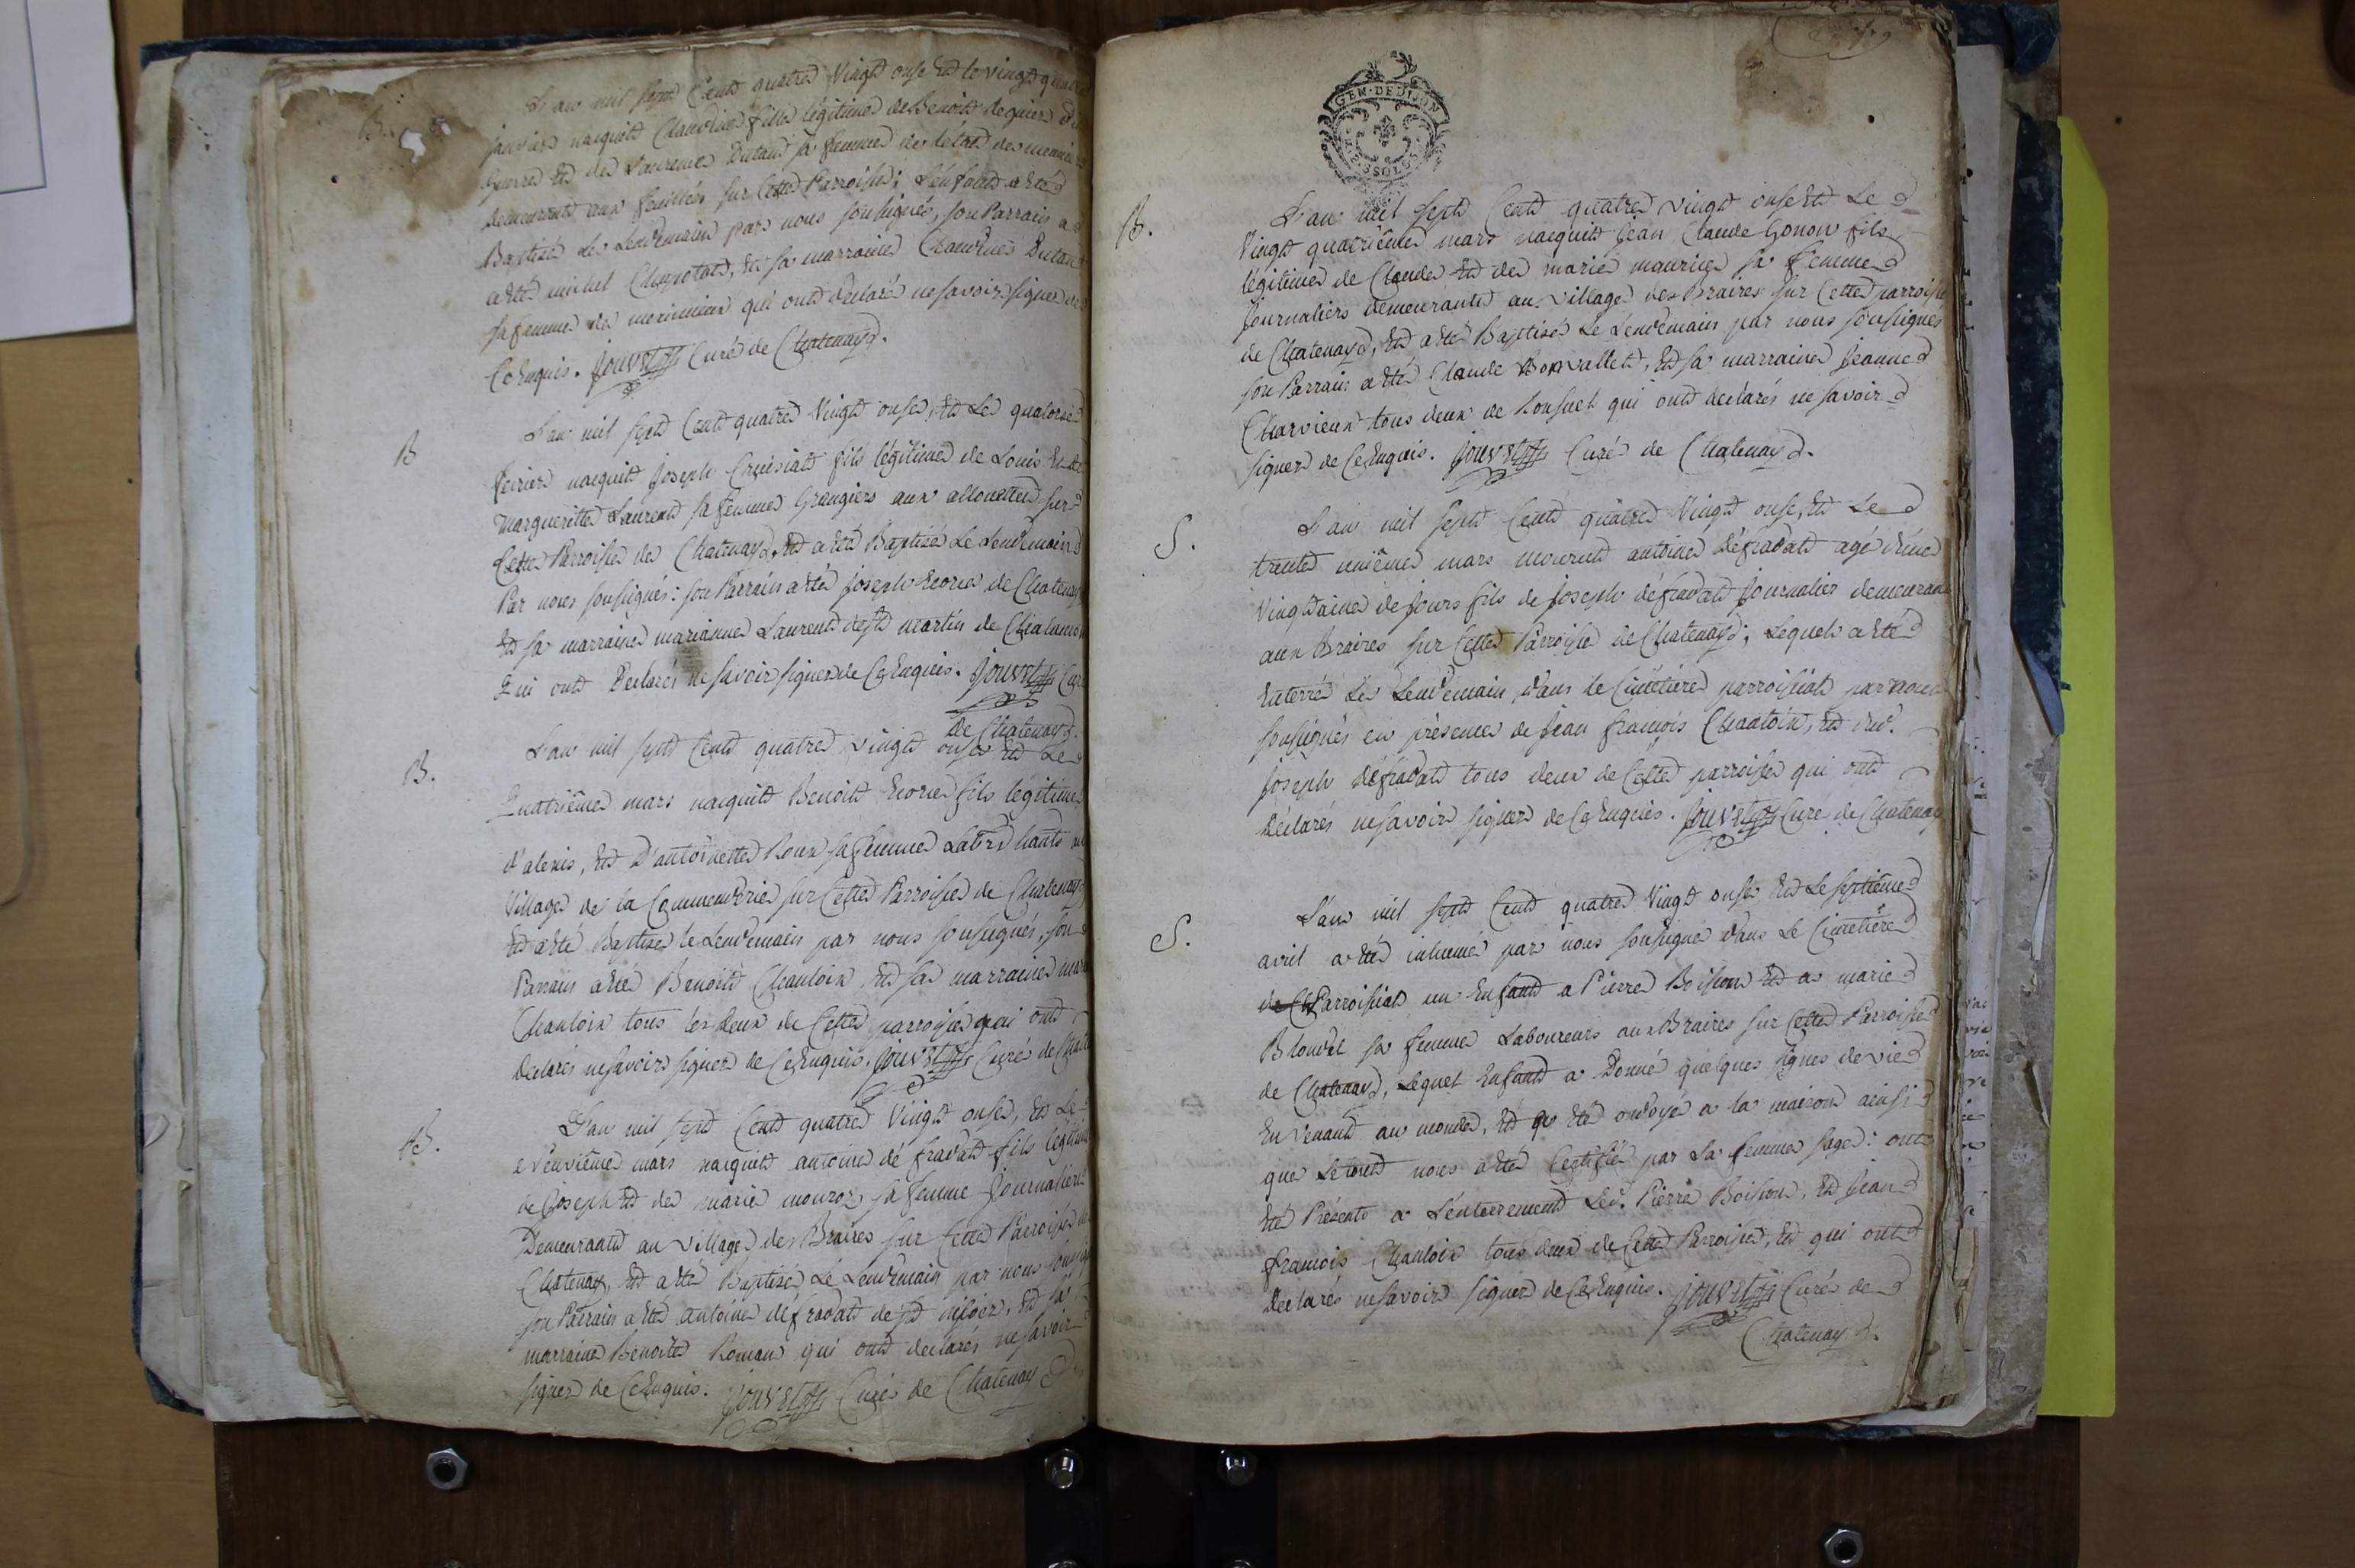 B.
L'an mil sept Cent quatre Vingt onse Et le vingt
janvier naquit Claudine fille légitime de Benoit deguier
Et de Laurence Dutand sa femme de
demeurants aux feuilles sur Cette Parroisse; L'enfant a Eté
Baptisé Le Lendemain par nous soussignés, son Parrain a
Eté michel, Et sa marraine Claudine
sa femme de meximieux qui ont déclaré ne savoir signer
Ce Enquis. Jouvet Curé de Chatenay.
B
L'an mil sept Cent quatre Vingt onse, Et Le quatorse
fevrier naquit Joseph Cruisiat fils légitime de Louis Et de
Margueritte Laurent sa femme Grangiers aux allouettes sur
Cette Parroisse de Chatenay, Et a Eté Baptisé Le Lendemain
Par nous soussignés: son Parrain a Eté joseph Ecorier de Chatenay
Et sa marraine marianne Laurent de st martin de Chalamon
Qui ont Declarés ne savoir signer de Ce Enquis. Jouvet Curé
De Chatenay.
B.
L'an mil sept Cent quatre vingt onse Et Le
Quatrième mars naquit Benoit Ecorier fils légitime
d'alexis, Et D'antoinette Roux sa femme Lab. hants au
Village de la Commenderie sur Cette Parroisse de Chatenay
Et a Eté Baptisé le Lendemain par nous soussignés, son
Parrain a Eté Benoit Chanloin, Et sa marraine
Chanloin tous les deux de Cette parroisse qui ont
declarés ne savoir signer de Ce Enquis. Jouvet Curé de
B.
L'an mil sept Cent quatre Vingt onse, Et Le
deuxième mars naquit antoine défradat fils légitime
de Joseph Et de marie mouroz sa femme Journaliers
Demeurants au village des Braires sur Cette Parroisse de
Chatenay, Et a Eté Baptisé Le Lendemain par nous
son Parrain a Eté antoine défradat de st nisier, Et sa
marraine Benoite Roman qui ont declarés ne savoir
signer de Ce Enquis. Jouvet Curé de Chatenay
GEN. DE DIJON
B.
L'an mil sept Cent quatre vingt onse Et Le
Vingt quatrième mars naquit jean Claude Gonon fils
légitime de Claude Et de marie maurice sa femme
Journaliers demeurants au village des Braires sur Cette parroisse
de Chatenay, Et a Eté Baptisé Le Lendemain par nous soussignés
son Parrain a Eté Claude Bonvallet, Et sa marraine Jeanne
Charvieux tous deux de Ronsuel qui ont declarés ne savoir
signer de Ce Enquis. Jouvet Curé de Chatenay.
S.
L'an mil sept Cent quatre Vingt onse, Et Le
trente unième mars mourut antoine défradat agé d'une
Vingtaine de jours fils de joseph défradat Journalier demeurant
aux Braires sur Cette Parroisse de Chatenay; Lequel a Eté
Enterré Le Lendemain dans le Cimetière parroissial par nous
soussignés en présence de jean françois Chanloin, Et dud.
joseph défradat tous deux de Cette parroisse qui ont
declarés ne savoir signer de Ce Enquis. Jouvet Curé de Chatenay
S.
L'an mil sept Cent quatre Vingt onse Et Le septième
avril a Eté inhumé par nous soussigné dans Le Cimetière
de Ch Parroissial un Enfant a Pierre Boisson Et a marie
Blondel sa femme Laboureurs aux Braires sur Cette Parroisse
de Chatenay, Lequel Enfant a Donné quelques signes de vie
En venant au monde, Et a Eté ondoyé a la maison ainsi
que Le tout nous a Eté Certifié par La femme sage: ont
Eté Présents a L'enterrement Led. Pierre Boisson, Et jean
françois Chanloin tous deux de Cette Parroisse, Et qui ont
declarés ne savoir signer de Ce Enquis. Jouvet Curé de
Chatenay.